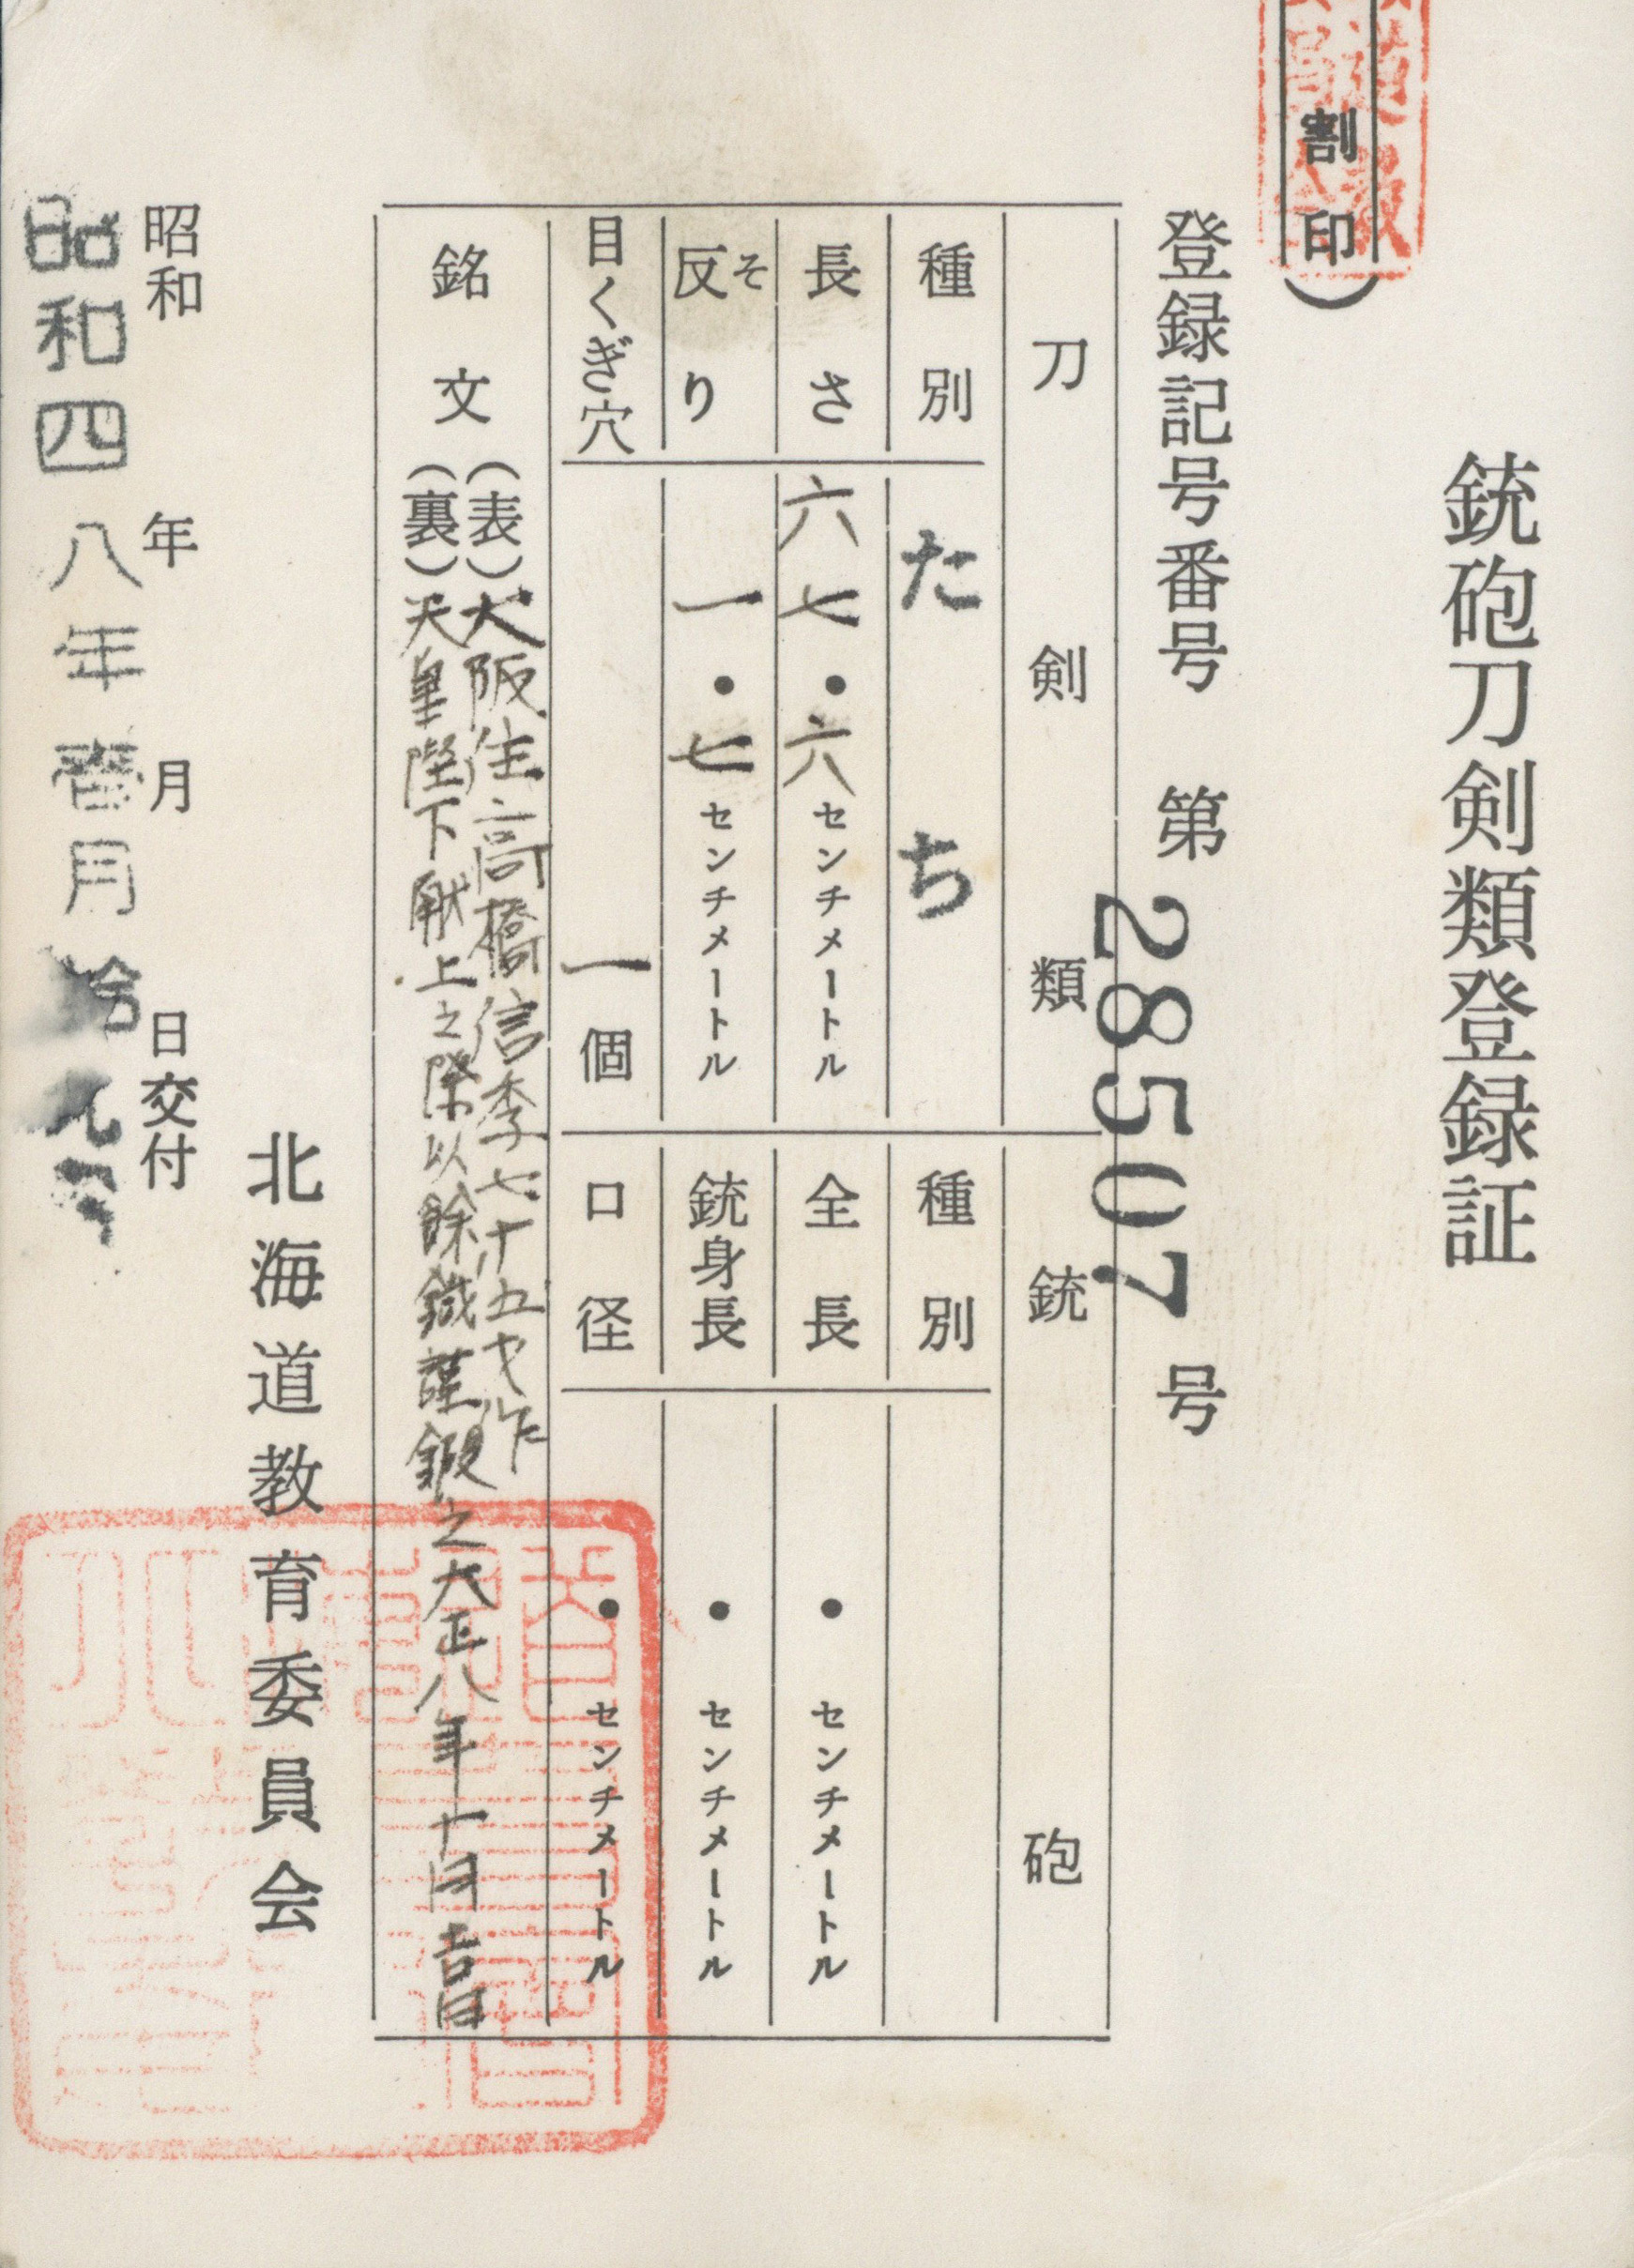 銃砲刀剣類登録証
割印）
登録記号番号 第 28507 号
刀剣類
種別 たち
長さ 六七・六センチメートル
反り そ 一・七センチメートル
目くぎ穴 一個
銃砲
種別
全長 ・ センチメートル
銃身長 ・ センチメートル
口径 ・ センチメートル
銘文（表）大阪住高橋信秀七十五才作
（裏）天皇陛下献上之際以餘鐵謹鍛之大正八年十月吉日
北海道教育委員会
昭和 年 月 日交付
昭和四八年壱月拾九